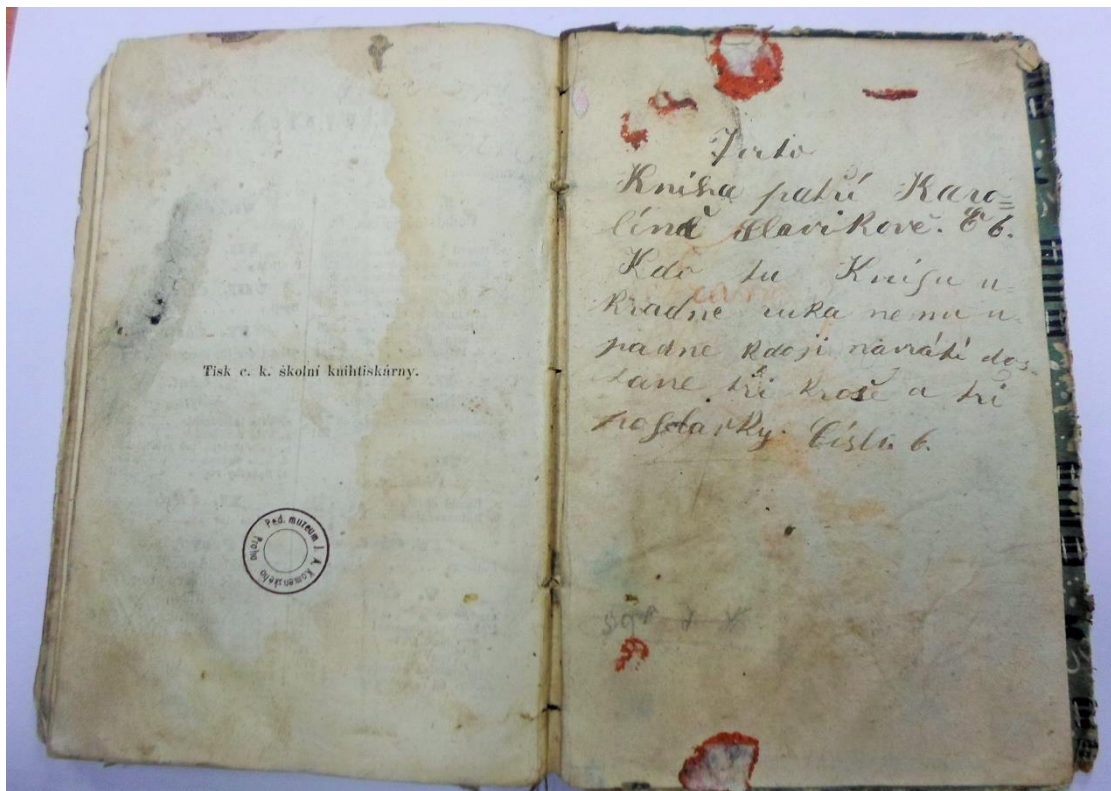 Tisk c. k. školní knihtiskárny.
Ped. muzeum J. A. Komenského
Praha
Tato
Kniha patří Karo=
líně Hlavikově. Č 6.
Kdo tu Knihu u-
kradne ruka nemu u-
padne kdo ji navrátí dos-
tane tři kroše a tři
pohlavky. Číslo 6.